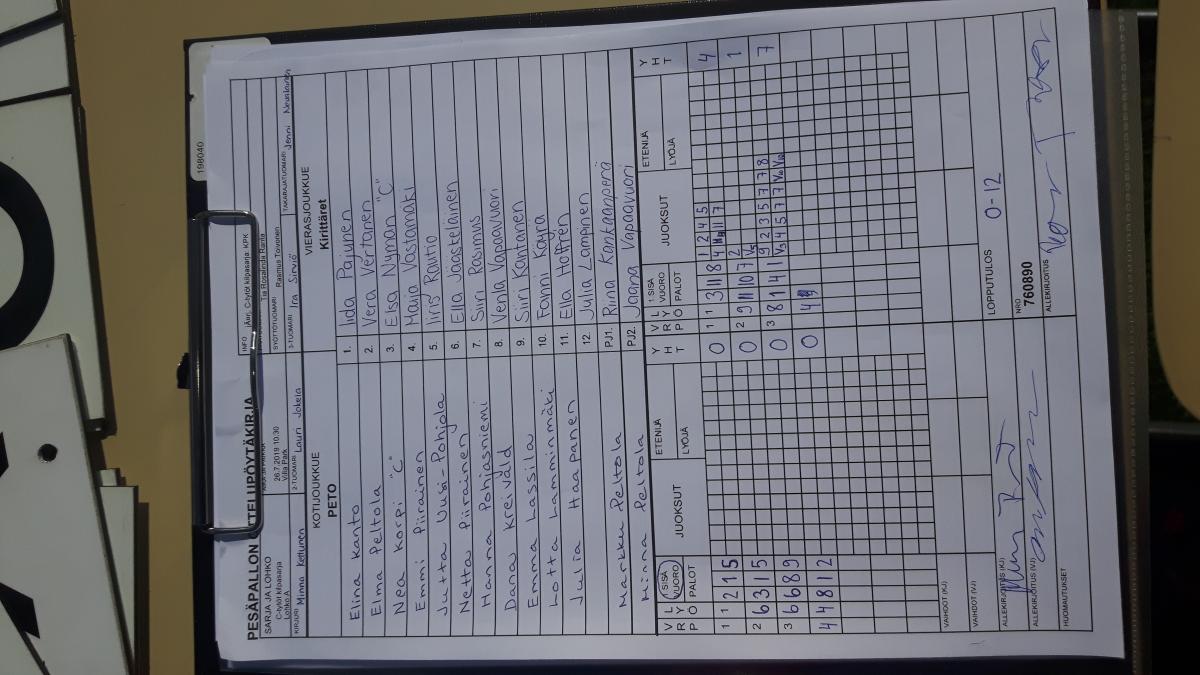 198040
PESÄPALLON OTTELUPÖYTÄKIRJA
SARJA JA LOHKO
C-tytöt kilpasarja
Lohko A
26.7.2019 10:30
Villa Park
INFO
C-tytöt kilpasarja KPK
Tia Rosalinda Ranta
SYÖTTÖTUOMARI Rasmus Toivonen
KIRJURI Minna Kettunen
2-TUOMARI Lauri Jokela
3-TUOMARI Ira Sirviö
TAKARAJATUOMARI Jenni
KOTIJOUKKUE
PETO
VIERASJOUKKUE
Kirittäret
Elina Kanto 1. Iida Pajunen
Elma Peltola 2. Vera Vertanen
Nea Korpi "C" 3. Elsa Nyman "C"
Emmi Piirainen 4. Maija Västämäki
Jutta Uusi-Pohjola 5. Iiris Rautio
Netta Piirainen 6. Ella Jääskeläinen
Hanna Pohjasniemi 7. Siiri Rasmus
Dana Kreivald 8. Venla Vapaavuori
Emma Lassila 9. Siiri Kantanen
Lotta Lamminmäki 10. Fanni Käyrä
Julia Haapanen 11. Ella Hoffrén
12. Julia Lampinen
Markku Peltola PJ1. Riina Kankaanperä
Minna Peltola PJ2. Jaana Vapaavuori
VRP LYÖ SISÄ VUORO PALOT JUOKSUT ETENIJÄ LYÖJÄ YHT
VRP LYÖ SISÄ VUORO PALOT JUOKSUT ETENIJÄ LYÖJÄ YHT
1 1 2 1 5 0
1 1 3 11 8 1 2 4 5 4
2 6 3 1 5 0
2 9 11 10 7 2 1
3 6 6 8 9 0
3 8 1 4 1 9 2 3 5 7 7 8 7
4 4 8 12 0
VAIHDOT (KJ)
VAIHDOT (VJ)
LOPPUTULOS 0-12
ALLEKIRJOITUS (KJ)
NRO
760890
ALLEKIRJOITUS (VJ)
ALLEKIRJOITUS
HUOMAUTUKSET